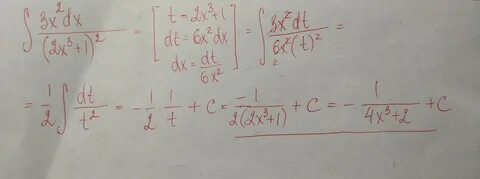 ∫ 3x²dx / (2x³+1)² = [ t = 2x³+1
dt = 6x²dx
dx = dt / 6x² ] = ∫ 3x²dt / 6x²(t)² =
2
= 1/2 ∫ dt / t² = - 1/2 · 1/t + C = -1 / 2(2x³+1) + C = - 1 / 4x³+2 + C